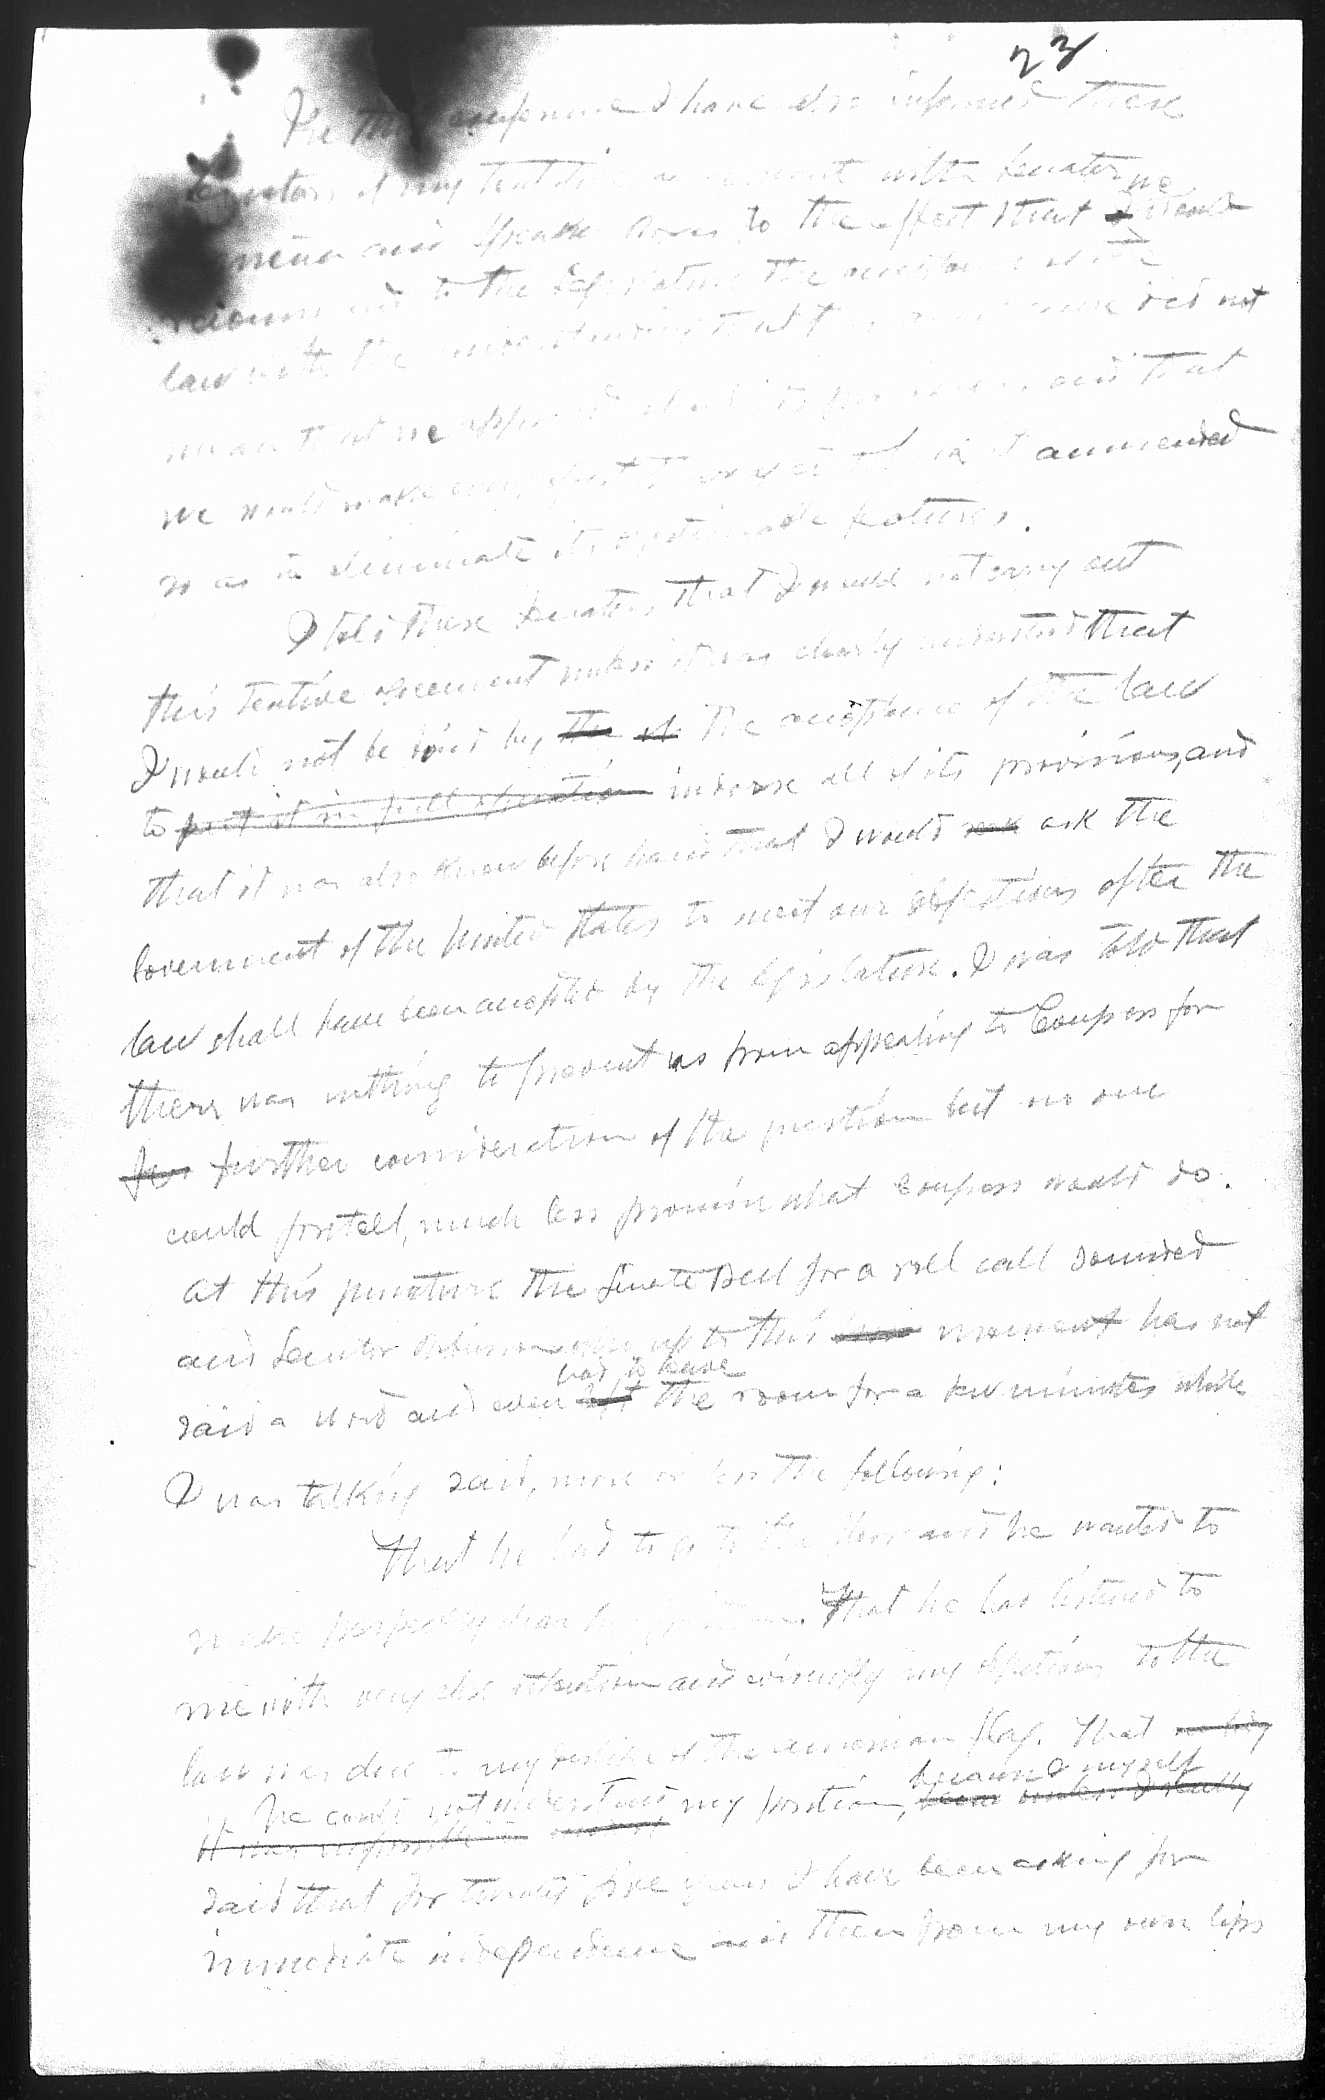 23
I have also informed these
Senators of my tentative agreement with Senator
and Speaker Roxas to the effect that we would
to the Legislature the acceptance of the
law with the understanding that did not
mean that we and that
we would make every effort to amended
so as to eliminate its objectionable features.
I told these Senators that I would not carry out
this tentive agreement unless it was clearly understood that
I would not be bound by, the the acceptance of the law
to put it in full operation indorse all of its provisions, and
that it was also known before hand that I would ask the
Government of the United States to meet our objections after the
law shall have been accepted by the legislature. I was told that
there was nothing to prevent us from appealing to Congress for
for further consideration of the question but no one
could foretell, much less promise what Congress would do.
At this juncture the Senate Bell for a roll call sounded
and Senator Robinson who up to this moment has not
had to leave
said a word and even left the room for a few minutes while
I was talking said, more or less the following:
That he had to go to the floor and he wanted to
make perfectly clear his position. That he had listened to
me with very close attention and my objections to the
law was due to my dislike of the American flag. That
he could not understand my position, because I myself
It was impossible to unless I really
said that for twenty five years I have been asking for
immediate independence and then from my own lips